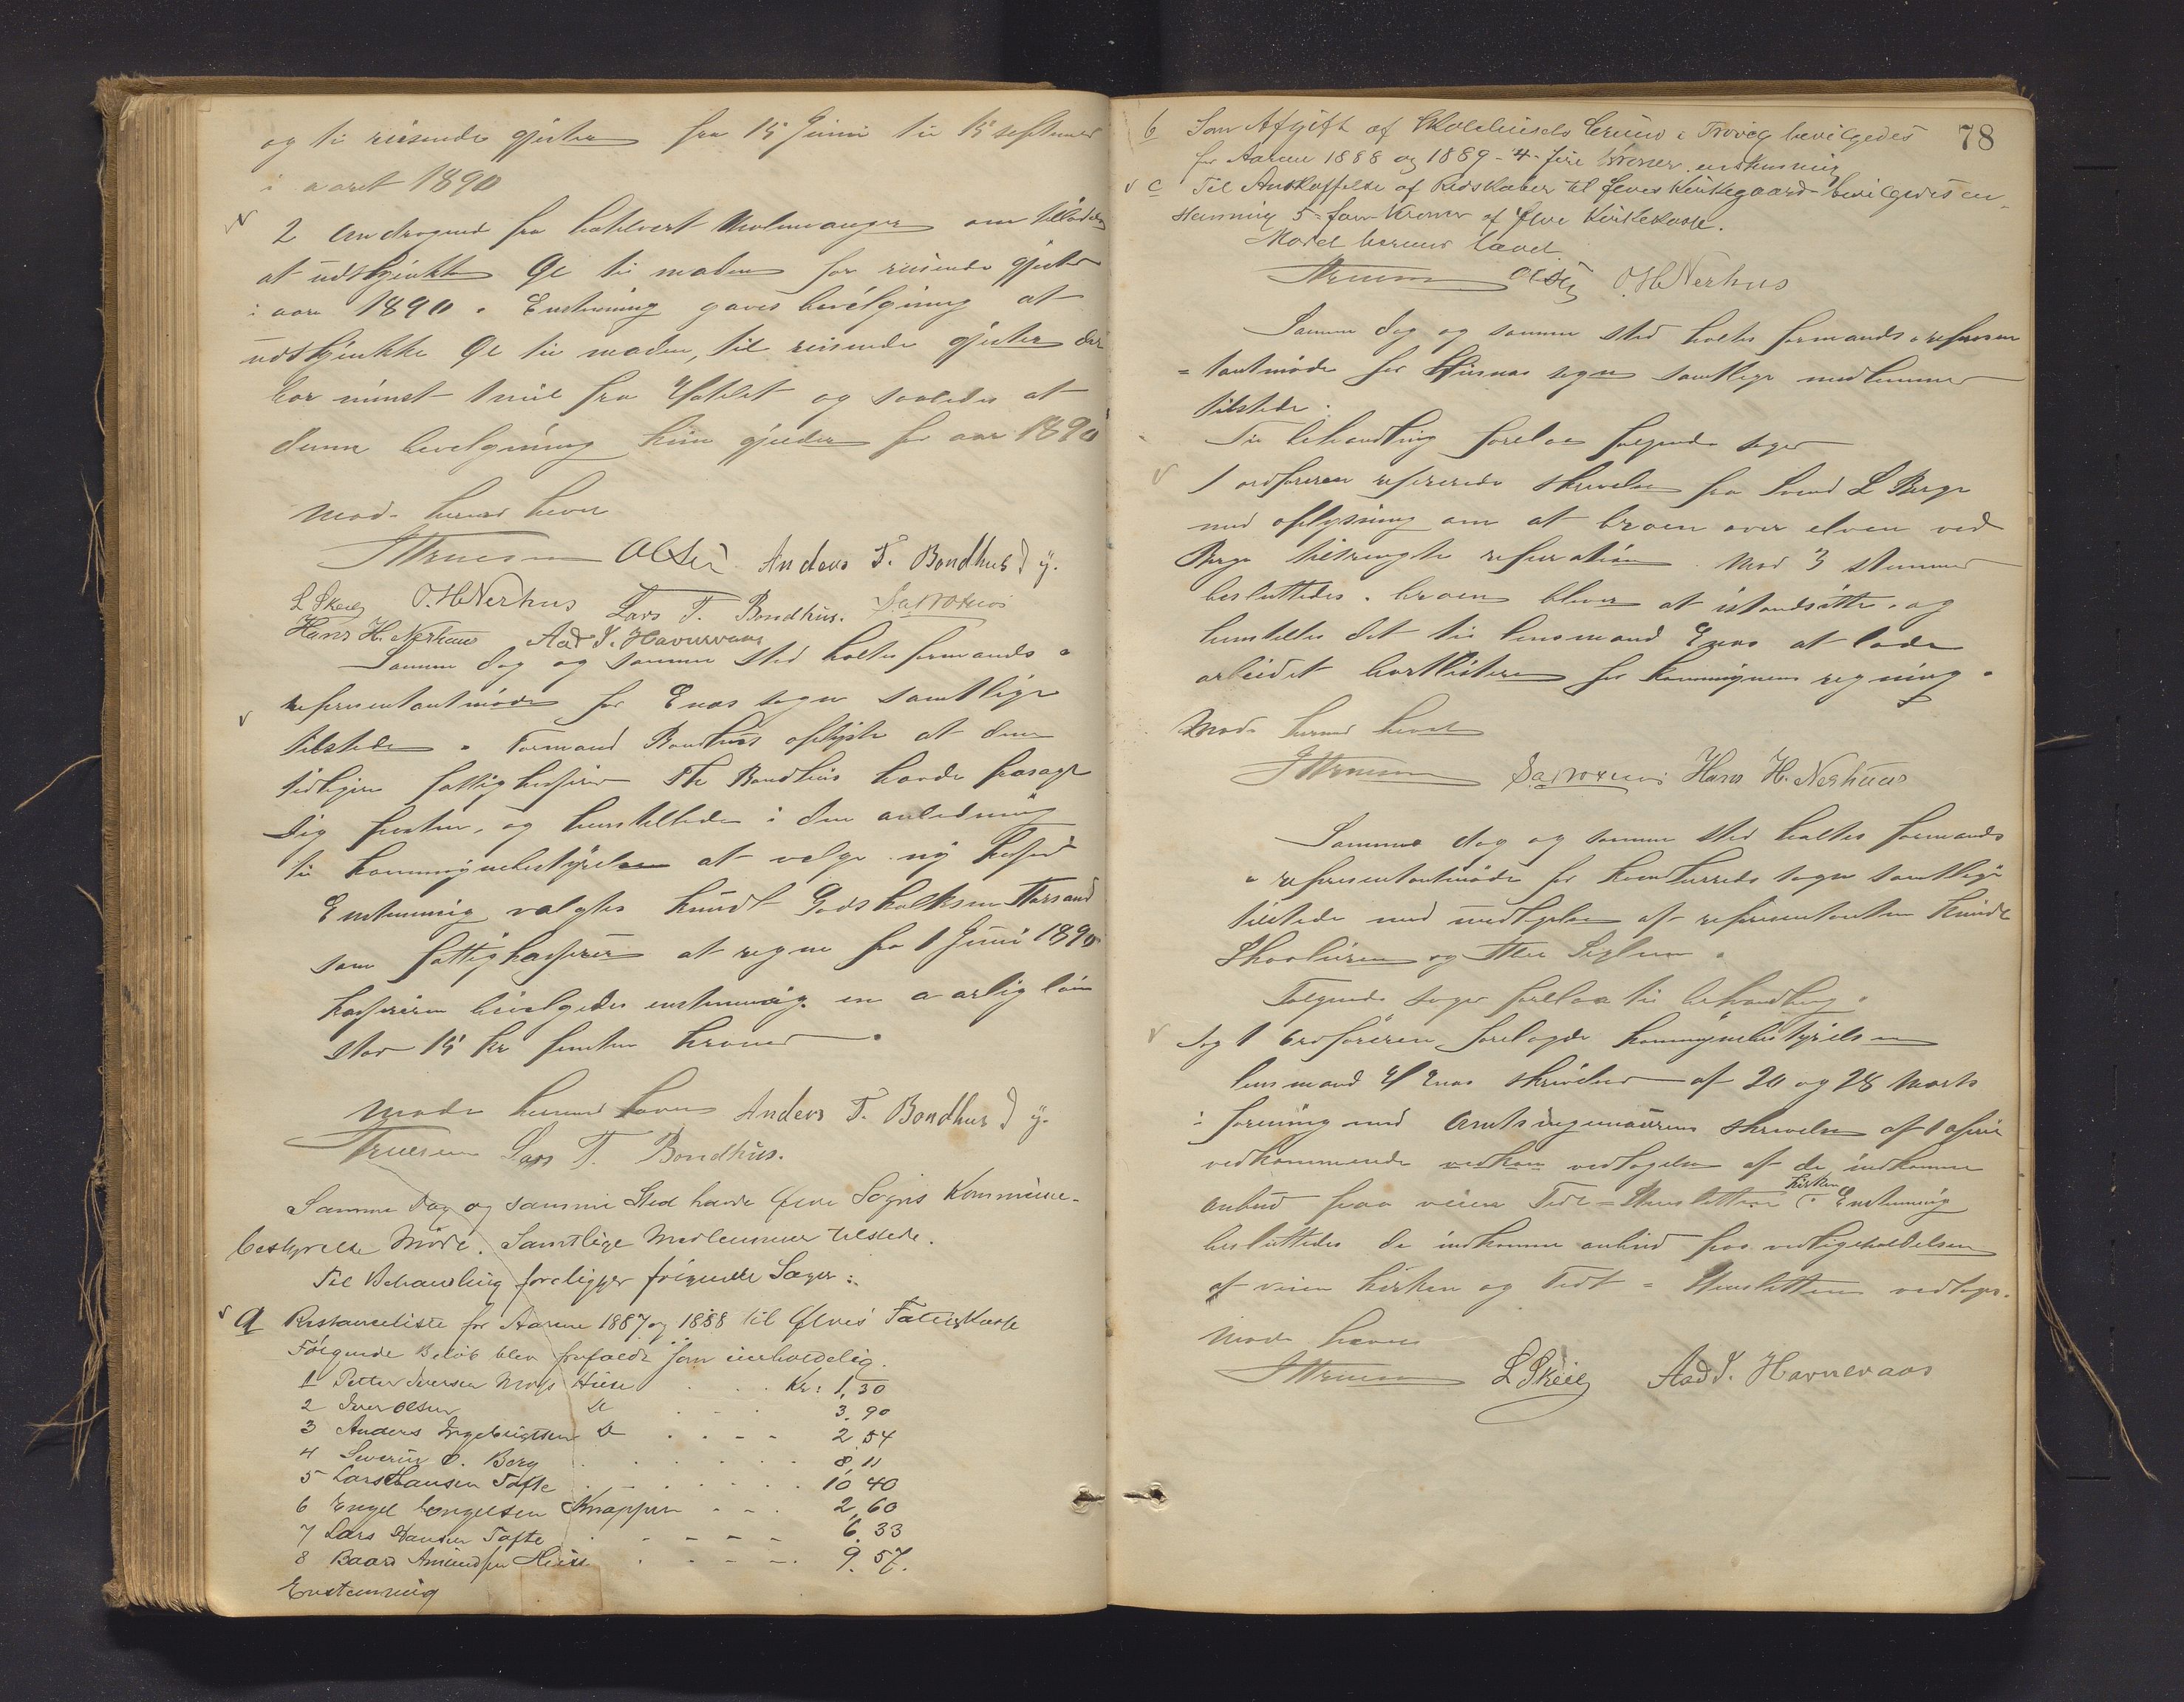 og til reisende gjester fra 15 Juni til 15 september
i aaret 1890
2 Andragende fra om tilladelse
at udskjenke Øl til maden for reisende gjester
i aar 1890. Enstemmig gaves bevilgning at
udskjenke Øl til maden, til reisende gjester der
bor minst 1 mil fra Hotelet og saaledes at
denne bevilgning kun gjelder for aar 1890
Møde hermed hevet
Anders T. Bondhus d y.
L Skeie O. H Nerhus Lars T. Bondhus.
Hans H. Nerhuus Aad J. Havnevaas
Samme dag og samme sted holtes formands &
representantmøde for Enæs sogn samtlige
tilstede. Formand Bondhus oplyste at den
tidligere fattigkasserer Bondhus havde frasagt
sig posten, og henstillede i den anledning
til kommunebestyrelsen at velge ny kasserer
Enstemmig valgtes Knudt Godskalksen
som fattigkasserer at regne fra 1 Juni 1890
kassereren bevilgedes enstemmig en aarlig løn
stor 15 kr femten kroner.
Møde hermed hevet Anders T. Bondhus d y.
Lars T. Bondhus.
Samme Dag og samme Sted havde Ølve Sogns Kommune-
bestyrelse Møde. Samtlige Medlemmer tilstede.
Til Behandling foreligger følgende Sager:
a Restanceliste for Aarene 1887 og 1888 til Ølves Fattigkasse
Følgende Beløb blev frafaldt som uerholdelig.
1 Petter Iversen Hiese . . . kr: 1,30
2 Iver Olsen Do . . . 3.90
3 Anders Ingebrigtsen Do . . . 2.54
4 Severin O. Berg . . . 8,11
5 Lars Hansen Tofte . . . 10 40
6 Engel Engelsen Knappen . . . 2,60
7 Lars Hansen Tofte . . . 6.33
8 Baard Amundsen . . . 9.57.
Enstemmig
78
b Som Afgift af Skolehusets Grund i bevilgedes
for Aarene 1888 og 1889 - 4 - fire Kroner enstemmig
c Til Anskaffelse af Redskaber til Ølves Kirkegaard bevilgedes en-
stemmig 5 - fem Kroner af Ølve Kirkekasse.
Mødet hermed hævet
O. H Nerhus
Samme dag og samme sted holtes formands & represen
= tantmøde for Husnæs sogn samtlige medlemmer
tilstede.
Til behandling forelaa følgende sager
1 ordføreren refererede skrivelse fra Svend L Berge
med oplysning om at broen over elven ved
Berge tiltrengte reperation. Mod 3 stemmer
besluttedes. broen bliver at istandsætte, og
henstilles det til lensmand Enæs at lade
arbeidet bortlicitere for kommunens regning.
Møde hermed hevet
Hans H. Nerhuus
Samme dag og samme sted holtes formands
& representantmøde for Kvindherreds sogn samtlige
tilstede med undtagelse af representanten Knudt
og
Følgende sager forelaa til behandling.
Sag 1 Ordføreren forelagde kommunebestyrelsen
lensmand Enæs skrivelser af 20 og 28 Marts
i forening med Amtsingeniørens skrivelse af 1 april
vedkommende vedtagelse af de indkomne
kirken
anbud paa veien Tedt = Enstemmig
besluttedes de indkomne anbud paa vedligeholdelsen
af veien kirken og Tedt = vedtages.
Møde hævet
L Skeie Aad J. Havnevaas